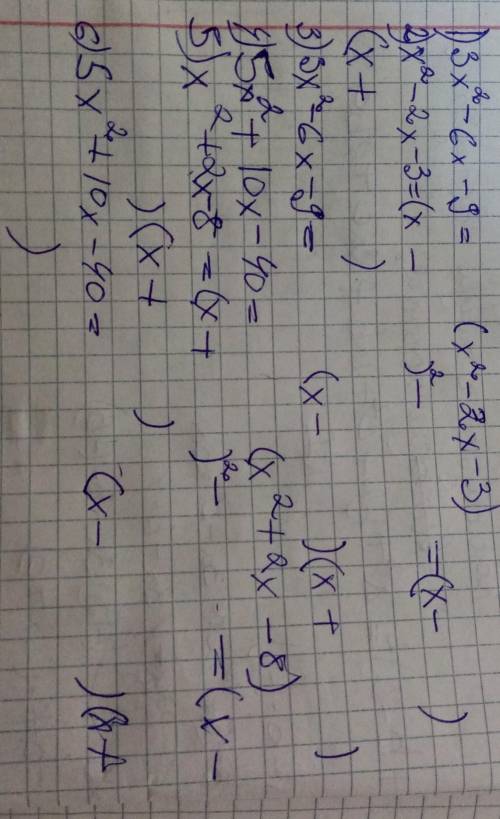 1) 3x² - 6x - 9 = (x² - 2x - 3)
2) x² - 2x - 3 = (x - )² - = (x - )
(x + )
3) 3x² - 6x - 9 = (x - )(x + )
4) 5x² + 10x - 40 = (x² + 2x - 8)
5) x² + 2x - 8 = (x + )² - = (x -
)(x + )
6) 5x² + 10x - 40 = (x - )(x +
)